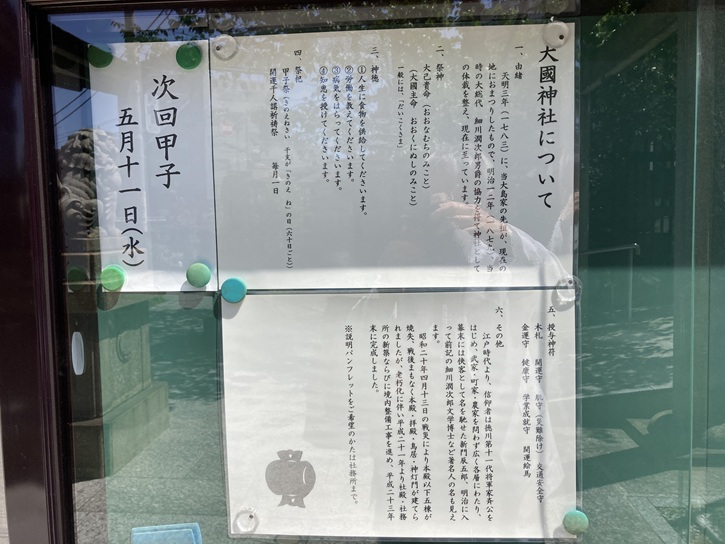 大國神社について
一、由緒
天明三年（一七八三）に、当大島家の先祖が、現在の
地におまつりしたもので、明治一二年（一八七九）、当
時の大総代 細川潤次郎男爵の協力を得て神社として
の体裁を整え、現在に至っています。
二、祭神
大己貴命（おおなむちのみこと）
（大國主命 おおくにぬしのみこと）
一般には、「だいこくさま」
三、神徳
①人生に食物を供給してくださいます。
②労働を教えてくださいます。
③病気をはらってくださいます。
④知恵を授けてくださいます。
四、祭祀
甲子祭（きのえねさい 干支が「きのえ ね」の日（六十日ごと））
開運千人講祈祷祭 毎月一日
次回甲子
五月十一日(水)
五、授与神符
木札 開運守 肌守（災難除け） 交通安全守
金運守 健康守 学業成就守 開運絵馬
六、その他
江戸時代より、信仰者は徳川第十一代将軍家斉公を
はじめ、武家・町家・農家を問わず広く各層にわたり、
幕末には侠客として名を馳せた新門辰五郎、明治に入
って前記の細川潤次郎文学博士など著名人の名も見え
ます。
昭和二十年四月十三日の戦災により本殿以下五棟が
焼失、戦後まもなく本殿・拝殿・鳥居・神灯門が建てら
れましたが、老朽化に伴い平成二十一年より社殿・社務
所の新築ならびに境内整備工事を進め、平成二十三年
末に完成しました。
※説明パンフレットをご希望のかたは社務所まで。